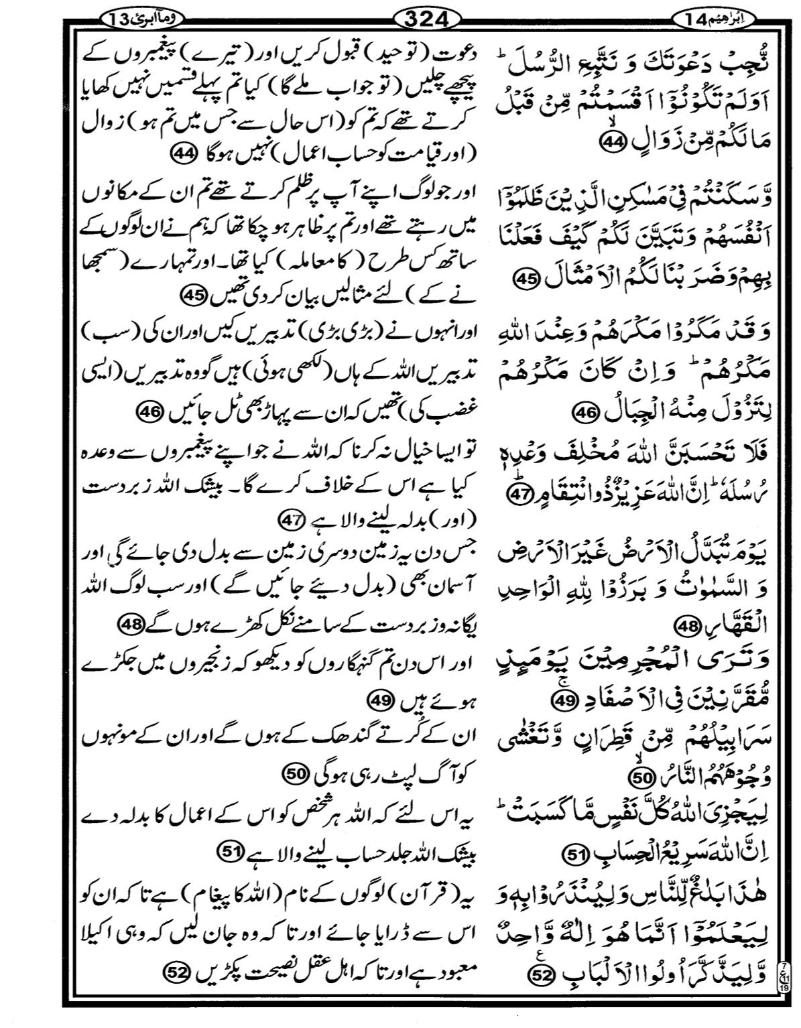 اِبْرٰهِيْم 14
324
وَمَآ اُبَرِّئُ 13
نُّجِبْ دَعْوَتَكَ وَ نَتَّبِعِ الرُّسُلَ ؕ
اَوَلَمْ تَكُوْنُوْۤا اَقْسَمْتُمْ مِّنْ قَبْلُ
مَا لَكُمْ مِّنْ زَوَالٍ ۙ 44
وَّ سَكَنْتُمْ فِیْ مَسٰكِنِ الَّذِیْنَ ظَلَمُوْۤا
اَنْفُسَهُمْ وَ تَبَیَّنَ لَكُمْ كَیْفَ فَعَلْنَا
بِهِمْ وَ ضَرَبْنَا لَكُمُ الْاَمْثَالَ 45
وَ قَدْ مَكَرُوْا مَكْرَهُمْ وَ عِنْدَ اللّٰهِ
مَكْرُهُمْ ؕ وَ اِنْ كَانَ مَكْرُهُمْ
لِتَزُوْلَ مِنْهُ الْجِبَالُ 46
فَلَا تَحْسَبَنَّ اللّٰهَ مُخْلِفَ وَعْدِهٖ
رُسُلَهٗ ؕ اِنَّ اللّٰهَ عَزِیْزٌ ذُو انْتِقَامٍ ؕ 47
یَوْمَ تُبَدَّلُ الْاَرْضُ غَیْرَ الْاَرْضِ
وَ السَّمٰوٰتُ وَ بَرَزُوْا لِلّٰهِ الْوَاحِدِ
الْقَهَّارِ 48
وَ تَرَی الْمُجْرِمِیْنَ یَوْمَىِٕذٍ
مُّقَرَّنِیْنَ فِی الْاَصْفَادِ ۚ 49
سَرَابِیْلُهُمْ مِّنْ قَطِرَانٍ وَّ تَغْشٰی
وُجُوْهَهُمُ النَّارُ ۙ 50
لِیَجْزِیَ اللّٰهُ كُلَّ نَفْسٍ مَّا كَسَبَتْ ؕ
اِنَّ اللّٰهَ سَرِیْعُ الْحِسَابِ 51
هٰذَا بَلٰغٌ لِّلنَّاسِ وَ لِیُنْذَرُوْا بِهٖ وَ
لِیَعْلَمُوْۤا اَنَّمَا هُوَ اِلٰهٌ وَّاحِدٌ
وَّ لِیَذَّكَّرَ اُولُوا الْاَلْبَابِ ع 52
دعوت (توحید) قبول کریں اور (تیرے) پیغمبروں کے
پیچھے چلیں (تو جواب ملے گا) کیا تم پہلے قسمیں نہیں کھایا
کرتے تھے کہ تم کو (اس حال سے جس میں تم ہو) زوال
(اور قیامت کو حساب اعمال) نہیں ہوگا 44
اور جو لوگ اپنے آپ پر ظلم کرتے تھے تم ان کے مکانوں
میں رہتے تھے اور تم پر ظاہر ہو چکا تھا کہ ہم نے ان لوگوں کے
ساتھ کس طرح (کا معاملہ) کیا تھا۔ اور تمہارے (سمجھا
نے کے) لئے مثالیں بیان کر دی تھیں 45
اور انہوں نے (بڑی بڑی) تدبیریں کیں اور ان کی (سب)
تدبیریں اللہ کے ہاں (لکھی ہوئی) ہیں گو وہ تدبیریں (ایسی
غضب کی) تھیں کہ ان سے پہاڑ بھی ٹل جائیں 46
تو ایسا خیال نہ کرنا کہ اللہ نے جو اپنے پیغمبروں سے وعدہ
کیا ہے اس کے خلاف کرے گا۔ بیشک اللہ زبردست
(اور) بدلہ لینے والا ہے 47
جس دن یہ زمین دوسری زمین سے بدل دی جائے گی اور
آسمان بھی (بدل دیئے جائیں گے) اور سب لوگ اللہ
یگانہ و زبردست کے سامنے نکل کھڑے ہوں گے 48
اور اس دن تم گنہگاروں کو دیکھو کہ زنجیروں میں جکڑے
ہوئے ہیں 49
ان کے کُرتے گندھک کے ہوں گے اور ان کے مونہوں
کو آگ لپٹ رہی ہوگی 50
یہ اس لئے کہ اللہ ہر شخص کو اس کے اعمال کا بدلہ دے
بیشک اللہ جلد حساب لینے والا ہے 51
یہ (قرآن) لوگوں کے نام (اللہ کا پیغام) ہے تاکہ ان کو
اس سے ڈرایا جائے اور تاکہ وہ جان لیں کہ وہی اکیلا
معبود ہے اور تاکہ اہل عقل نصیحت پکڑیں 52
7
ع 11
19